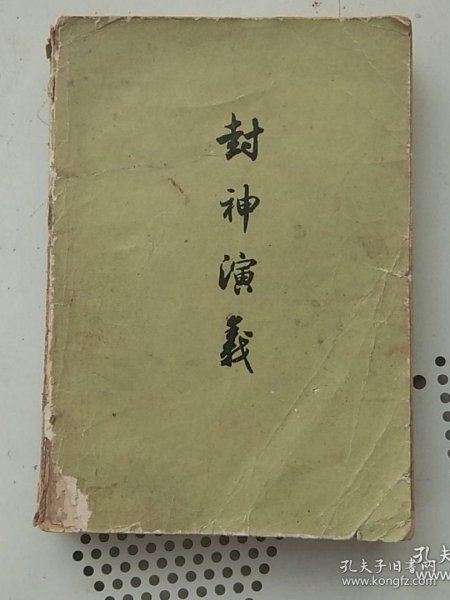 封神演義
孔夫子旧书网
www.kongfz.com
孔夫
www.